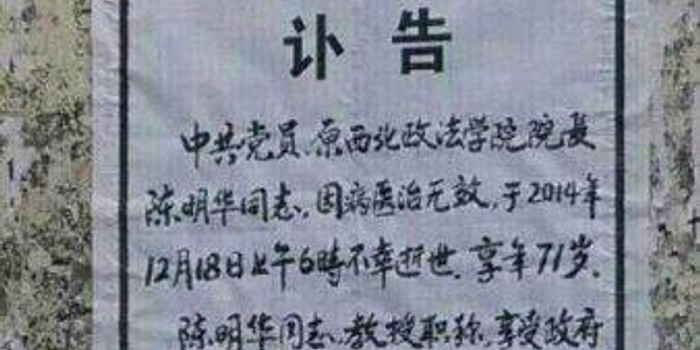 讣告
中共党员、原西北政法学院院长
陈明华同志，因病医治无效，于2014年
12月18日上午6時不幸逝世，享年71岁。
陈明华同志，教授职称，享受政府